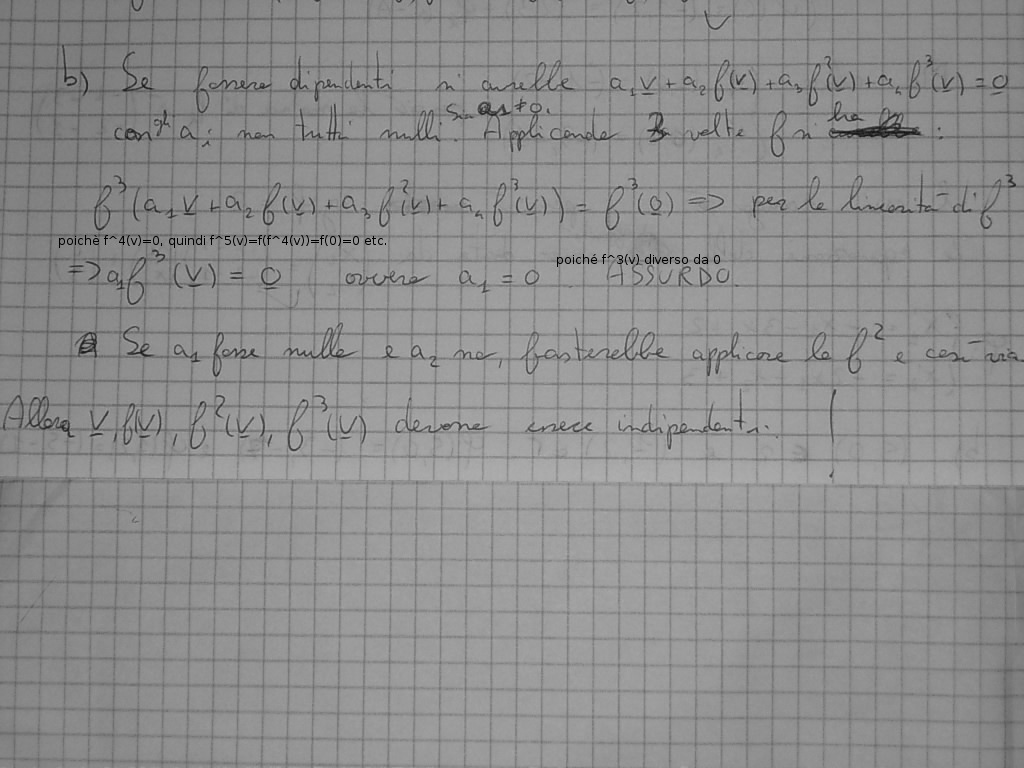 b) Se fossero dipendenti si avrebbe a₁v + a₂ f(v) + a₃ f²(v) + a₄ f³(v) = 0
con gli aᵢ non tutti nulli. Sia a₁ ≠ 0. Applicando 3 volte f si ha :
f³(a₁v + a₂ f(v) + a₃ f²(v) + a₄ f³(v)) = f³(0) => per la linearità di f³
poichè f^4(v)=0, quindi f^5(v)=f(f^4(v))=f(0)=0 etc.
poiché f^3(v) diverso da 0
=> a₁f³(v) = 0 ovvero a₁ = 0 ASSURDO.
Se a₁ fosse nullo e a₂ no, basterebbe applicare la f² e così via
Allora v, f(v), f²(v), f³(v) devono essere indipendenti.